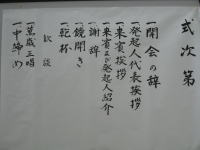 式次第
一開会の辞
一発起人代表挨拶
一来賓挨拶
一来賓及び発起人紹介
一謝辞
一鏡開き
一乾杯
歓談
一萬歳三唱
一中締め